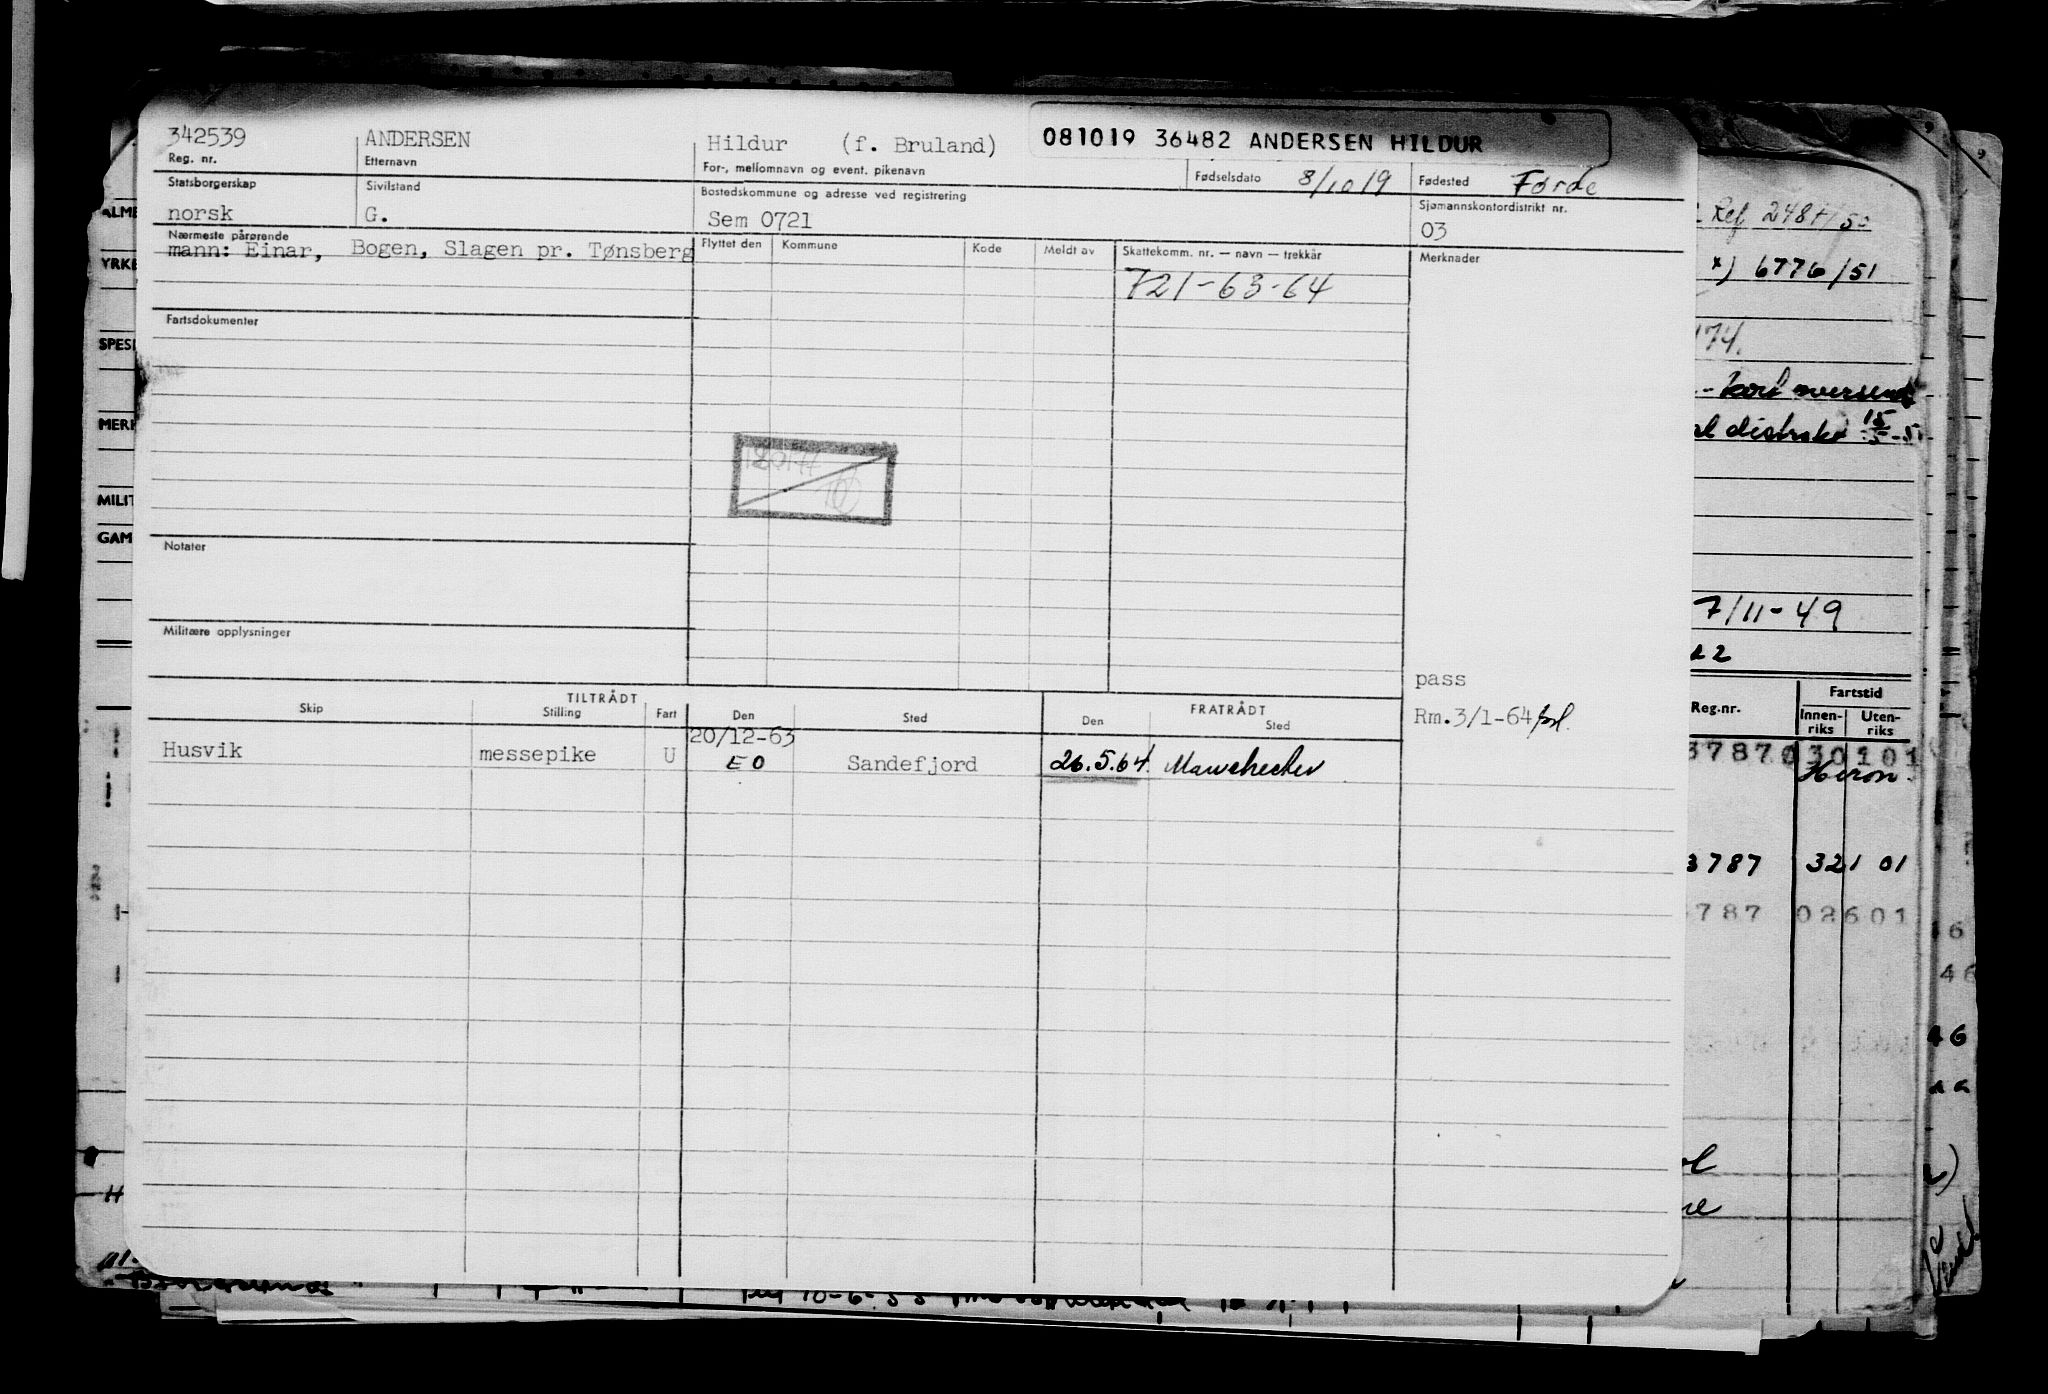 342539 ANDERSEN Hildur (f. Bruland) 081019 36482 ANDERSEN HILDUR
Reg. nr. Etternavn For-, mellomnavn og event. pikenavn Fødselsdato 8/10 19 Fødested Førde
Statsborgerskap Sivilstand Bostedskommune og adresse ved registrering Sjømannskontordistrikt nr.
norsk G. Sem 0721 03
Nærmeste pårørende Flyttet den Kommune Kode Meldt av Skattekomm. nr. — navn — trekkår Merknader
mann: Einar, Bogen, Slagen pr. Tønsberg
721-63-64
Fartsdokumenter
Notater
Militære opplysninger
pass
Rm. 3/1-64
TILTRÅDT FRATRÅDT
Skip Stilling Fart Den Sted Den Sted
20/12-63
Husvik messepike U EO Sandefjord 26.5.64 Manchester
ALME
YRKE
SPESI
MERK
MILIT
GAM
Ref 2484/50
x) 6776/51
174.
- kort oversendt
distrikt 15/5-5
7/11-49
22
Fartstid
Reg.nr. Innen-riks Uten-riks
37870 30101
Heron
3787 321 01
787 02601
6
46
46